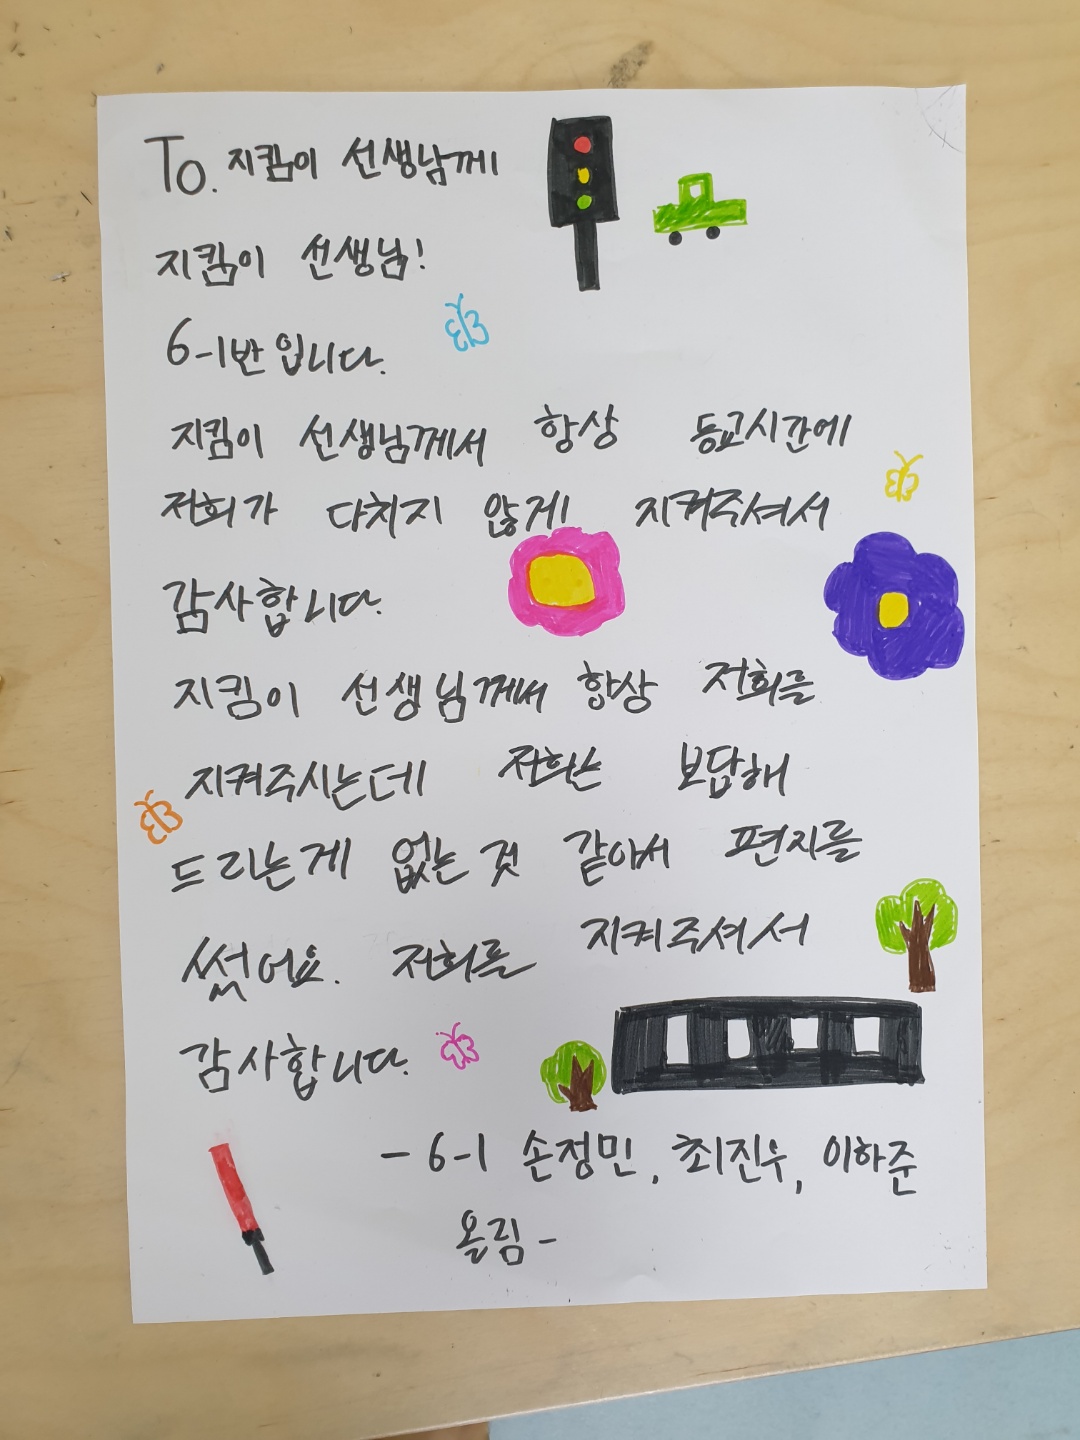 To.지킴이 선생님께
지킴이 선생님!
6-1반 입니다.
지킴이 선생님께서 항상 등교시간에
저희가 다치지 않게 지켜주셔서
감사합니다.
지킴이 선생님께서 항상 저희를
지켜주시는데 저희는 보답해
드리는게 없는 것 같아서 편지를
썼어요. 저희를 지켜주셔서
감사합니다.
- 6-1 손정민, 최진우, 이하준
올림 -